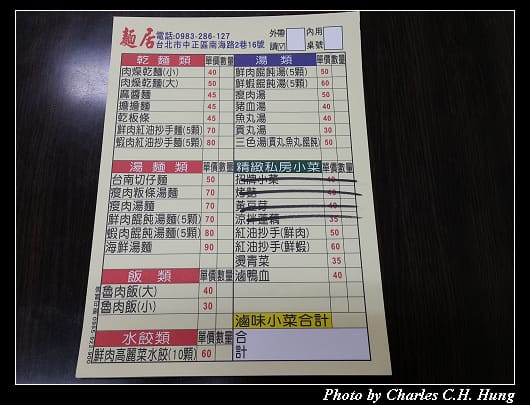 麵居
電話:0983-286-127
台北市中正區南海路2巷16號
外帶 內用
請☑ 桌號
乾麵類 單價 數量
肉燥乾麵(小) 40
肉燥乾麵(大) 50
麻醬麵 45
擔擔麵 45
乾板條 45
鮮肉紅油抄手麵(5顆) 70
蝦肉紅油抄手麵(5顆) 80
湯類 單價 數量
鮮肉餛飩湯(5顆) 50
鮮蝦餛飩湯(5顆) 60
瘦肉湯 50
豬血湯 40
魚丸湯 40
貢丸湯 30
三色湯(貢丸魚丸餛飩) 50
湯麵類 單價 數量
台南切仔麵 50
瘦肉粄條湯麵 70
瘦肉湯麵 70
鮮肉餛飩湯麵(5顆) 70
蝦肉餛飩湯麵(5顆) 80
海鮮湯麵 90
精緻私房小菜 單價 數量
招牌小菜 40
烤麩 40
黃豆芽 40
涼拌蓮藕 35
紅油抄手(鮮肉) 50
紅油抄手(鮮蝦) 60
燙青菜 35
滷鴨血 40
飯類 單價 數量
魯肉飯(大) 40
魯肉飯(小) 30
滷味小菜合計
水餃類 單價 數量
鮮肉高麗菜水餃(10顆) 60
合計
Photo by Charles C.H. Hung